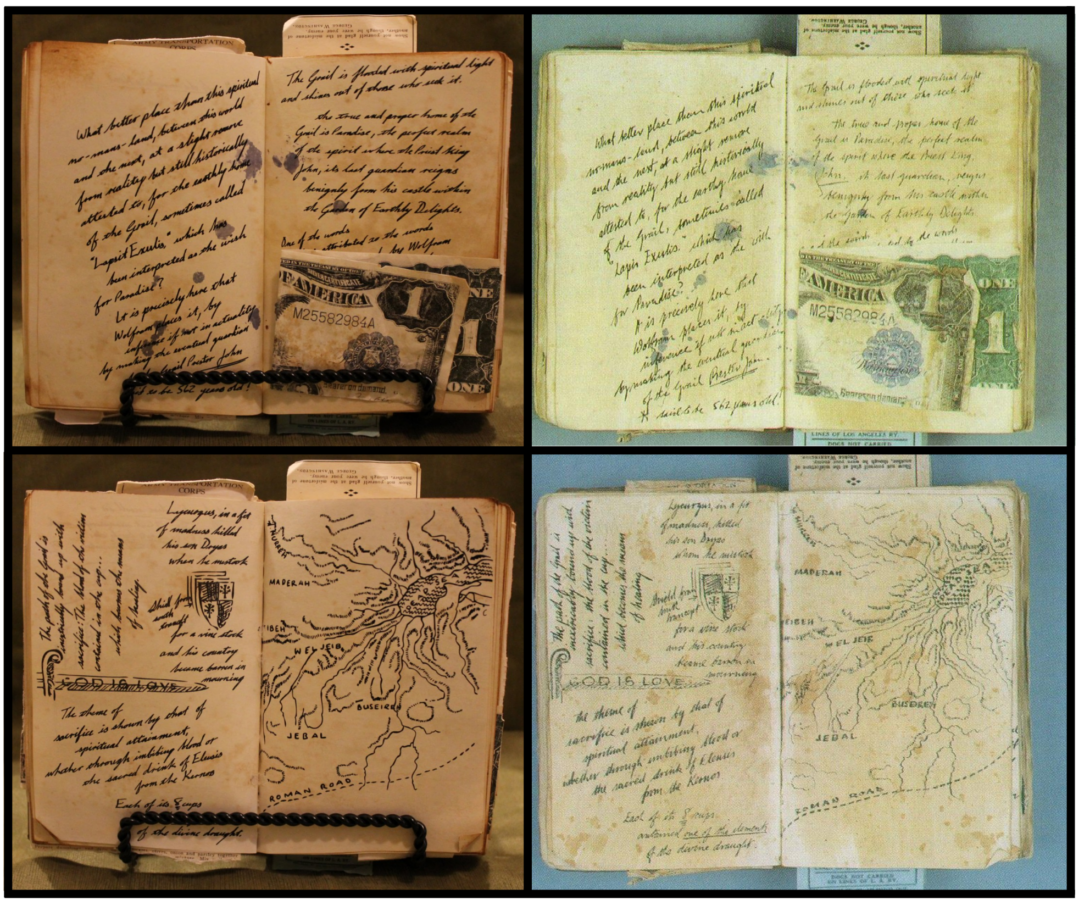 ARMY TRANSPORTATION
CORPS
Show not yourself glad at the misfortune of
another, though he were your enemy.
George Washington
What better place than this spiritual
no-mans-land, between this world
and the next, at a slight remove
from reality but still historically
attested to, for the earthly home
of the Grail, sometimes called
"Lapis Exultis" which has
been interpreted as the wish
for Paradise?
It is precisely here that
Wolfram places it, by
inference if not in actuality
by making the eventual guardian
Grail Prester John
to be 562 years old!
The Grail is flooded with spiritual light
and shines out of those who seek it.
the true and proper home of the
Grail is Paradise, the perfect realm
of the spirit where the Priest King
John, its last guardian reigns
benignly from his castle within
the Garden of Earthly Delights.
One of the words
attributed to the words
by Wolfram
OF AMERICA
1
ONE
M25582984A
1
ONE
Show not yourself glad at the misfortune of
another, though he were your enemy.
George Washington
What better place than this spiritual
no-mans-land, between this world
and the next, at a slight remove
from reality but still historically
attested to, for the earthly home
of the Grail, sometimes called
"Lapis Exultis" which has
been interpreted as the wish
for Paradise?
It is precisely here that
Wolfram places it, by
inference if not
by making the eventual guardian
of the Grail Prester John
said to be 562 years old!
The Grail is flooded with spiritual light
and shines out of those who seek it
the true and proper home of the
Grail is Paradise, the perfect realm
of the spirit where the Priest King
John, its last guardian, reigns
benignly from his castle within
the Garden of Earthly Delights
AMERICA
1
ONE
M25582984A
1
LINES OF LOS ANGELES RY.
DOES NOT CARRIED
TRANSPORTATION
CORPS
Show not yourself glad at the misfortune of
another, though he were your enemy.
George Washington
The path of the Grail is
inextricably bound up with
sacrifice: the blood of the victim
contained in the cup...
which becomes the means
of healing.
Lycurgus, in a fit
of madness killed
his son Dryas
when he mistook
for a vine stock
and his country
became barren in
mourning
GOD IS LOVE
The theme of
sacrifice is shown by that of
spiritual attainment,
whether through imbibing blood or
the sacred drink of Eleusis
from the Kernos
Each of its 8 cups
of the divine draught.
MADERAH
WEL JEIB
BUSEIREH
JEBAL
ROMAN ROAD
Show not yourself glad at the misfortune of
another, though he were your enemy.
George Washington
The path of the Grail is
inextricably bound up with
sacrifice: the blood of the victim
contained in the cup...
which becomes the means
of healing
Lycurgus, in a fit
of madness, killed
his son Dryas
when he mistook
for a vine stock
and his country
became barren in
mourning
GOD IS LOVE
the theme of
sacrifice is shown by that of
spiritual attainment,
whether through imbibing blood or
the sacred drink of Eleusis
from the Kernos
Each of its 8 cups
contained one of the elements
of the divine draught.
MADERAH
WEL JEIB
BUSEIREH
JEBAL
ROMAN ROAD
DOES NOT CARRIED
ON LINES OF L. A. RY.